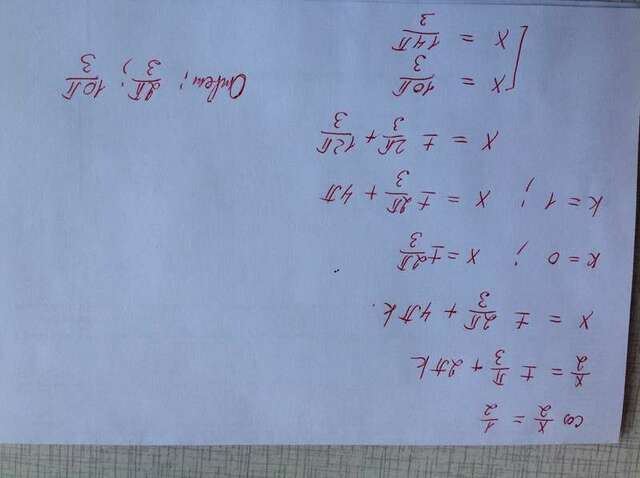 cos x/2 = 1/2
x/2 = ± π/3 + 2πk
x = ± 2π/3 + 4πk.
k = 0 ; x = ± 2π/3
k = 1 ; x = ± 2π/3 + 4π
x = ± 2π/3 + 12π/3
[ x = 10π/3
x = 14π/3
Ответ; 2π/3 ; 10π/3